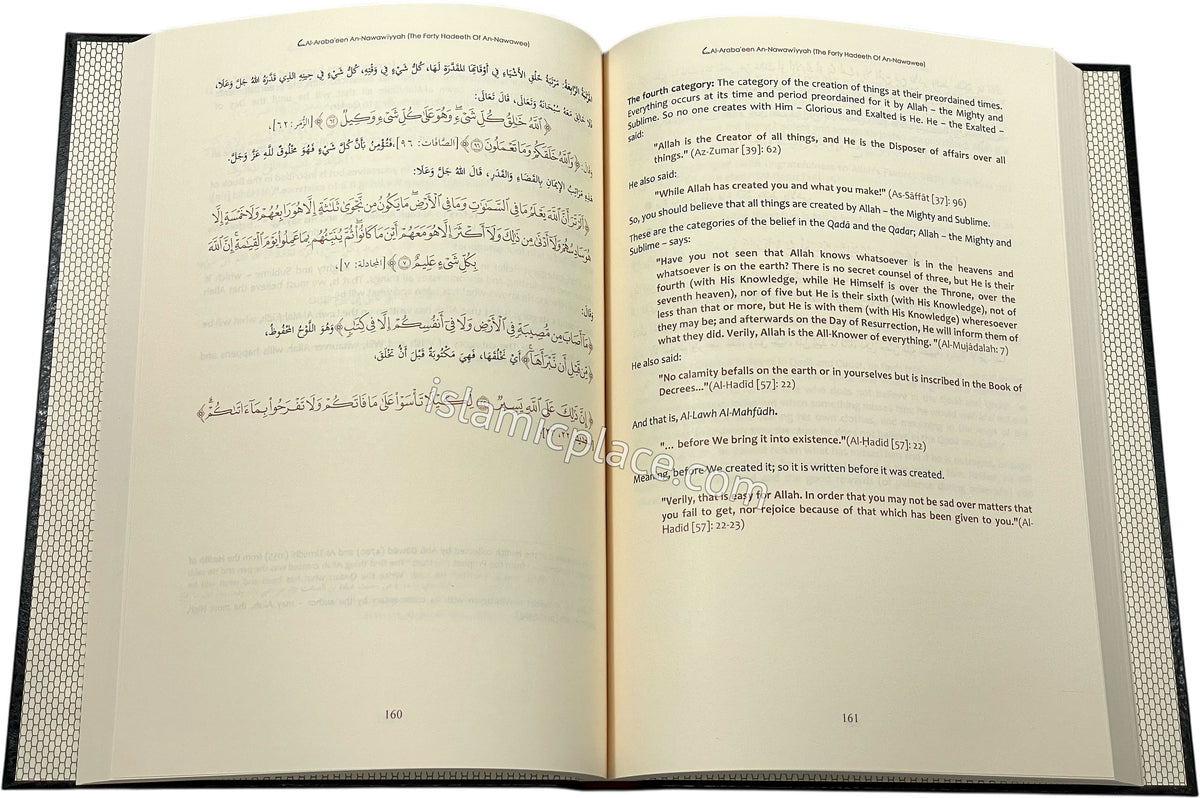 Al-Araba'een An-Nawawiyyah (The Forty Hadeeth Of An-Nawawee)
المَرْتَبَةُ الرَّابِعَةُ: مَرْتَبَةُ خَلْقِ الأَشْيَاءِ فِي أَوْقَاتِهَا المُقَدَّرَةِ لَهَا، كُلُّ شَيْءٍ فِي وَقْتِهِ، كُلُّ شَيْءٍ فِي حِينِهِ الَّذِي قَدَّرَهُ اللهُ جَلَّ وَعَلَا،
فَلَا خَالِقَ مَعَهُ سُبْحَانَهُ وَتَعَالَى، قَالَ تَعَالَى:
﴿ٱللَّهُ خَٰلِقُ كُلِّ شَىْءٍ وَهُوَ عَلَىٰ كُلِّ شَىْءٍ وَكِيلٌ ٦٢﴾ [الزُّمَر: ٦٢]،
وَقَالَ: ﴿وَٱللَّهُ خَلَقَكُمْ وَمَا تَعْمَلُونَ ٩٦﴾ [الصَّافَّات: ٩٦]، فَتُؤْمِنُ بِأَنَّ كُلَّ شَيْءٍ فَهُوَ مَخْلُوقٌ للهِ عَزَّ وَجَلَّ.
هَذِهِ مَرَاتِبُ الإِيمَانِ بِالقَضَاءِ وَالقَدَرِ، قَالَ اللهُ جَلَّ وَعَلَا:
﴿أَلَمْ تَرَ أَنَّ ٱللَّهَ يَعْلَمُ مَا فِى ٱلسَّمَٰوَٰتِ وَمَا فِى ٱلْأَرْضِ مَا يَكُونُ مِن نَّجْوَىٰ ثَلَٰثَةٍ إِلَّا هُوَ رَابِعُهُمْ وَلَا خَمْسَةٍ إِلَّا
هُوَ سَادِسُهُمْ وَلَآ أَدْنَىٰ مِن ذَٰلِكَ وَلَآ أَكْثَرَ إِلَّا هُوَ مَعَهُمْ أَيْنَ مَا كَانُوا۟ ثُمَّ يُنَبِّئُهُم بِمَا عَمِلُوا۟ يَوْمَ ٱلْقِيَٰمَةِ إِنَّ ٱللَّهَ
بِكُلِّ شَىْءٍ عَلِيمٌ ٧﴾ [المجادلة: ٧]،
وَقَالَ:
﴿مَآ أَصَابَ مِن مُّصِيبَةٍ فِى ٱلْأَرْضِ وَلَا فِىٓ أَنفُسِكُمْ إِلَّا فِى كِتَٰبٍ﴾ وَهُوَ اللَّوْحُ المَحْفُوظُ،
﴿مِّن قَبْلِ أَن نَّبْرَأَهَآ﴾ أَيْ نَخْلُقَهَا، فَهِيَ مَكْتُوبَةٌ قَبْلَ أَنْ تُخْلَقَ،
﴿إِنَّ ذَٰلِكَ عَلَى ٱللَّهِ يَسِيرٌ لِّكَيْلَا تَأْسَوْا۟ عَلَىٰ مَا فَاتَكُمْ وَلَا تَفْرَحُوا۟ بِمَآ ءَاتَىٰكُمْ﴾
160
Al-Araba'een An-Nawawiyyah (The Forty Hadeeth Of An-Nawawee)
The fourth category: The category of the creation of things at their preordained times.
Everything occurs at its time and period preordained for it by Allah – the Mighty and
Sublime. So no one creates with Him – Glorious and Exalted is He. He – the Exalted –
said:
"Allah is the Creator of all things, and He is the Disposer of affairs over all
things." (Az-Zumar [39]: 62)
He also said:
"While Allah has created you and what you make!" (As-Sāffāt [37]: 96)
So, you should believe that all things are created by Allah – the Mighty and Sublime.
These are the categories of the belief in the Qadā and the Qadar; Allah – the Mighty and
Sublime – says:
"Have you not seen that Allah knows whatsoever is in the heavens and
whatsoever is on the earth? There is no secret counsel of three, but He is their
fourth (with His Knowledge, while He Himself is over the Throne, over the
seventh heaven), nor of five but He is their sixth (with His Knowledge), not of
less than that or more, but He is with them (with His Knowledge) wheresoever
they may be; and afterwards on the Day of Resurrection, He will inform them of
what they did. Verily, Allah is the All-Knower of everything. "(Al-Mujādalah: 7)
He also said:
"No calamity befalls on the earth or in yourselves but is inscribed in the Book of
Decrees..."(Al-Hadid [57]: 22)
And that is, Al-Lawh Al-Mahfūdh.
"... before We bring it into existence."(Al-Ḥadid [57]: 22)
Meaning, before We created it; so it is written before it was created.
"Verily, that is easy for Allah. In order that you may not be sad over matters that
you fail to get, nor rejoice because of that which has been given to you."(Al-
Hadid [57]: 22-23)
161
islamicplace.com